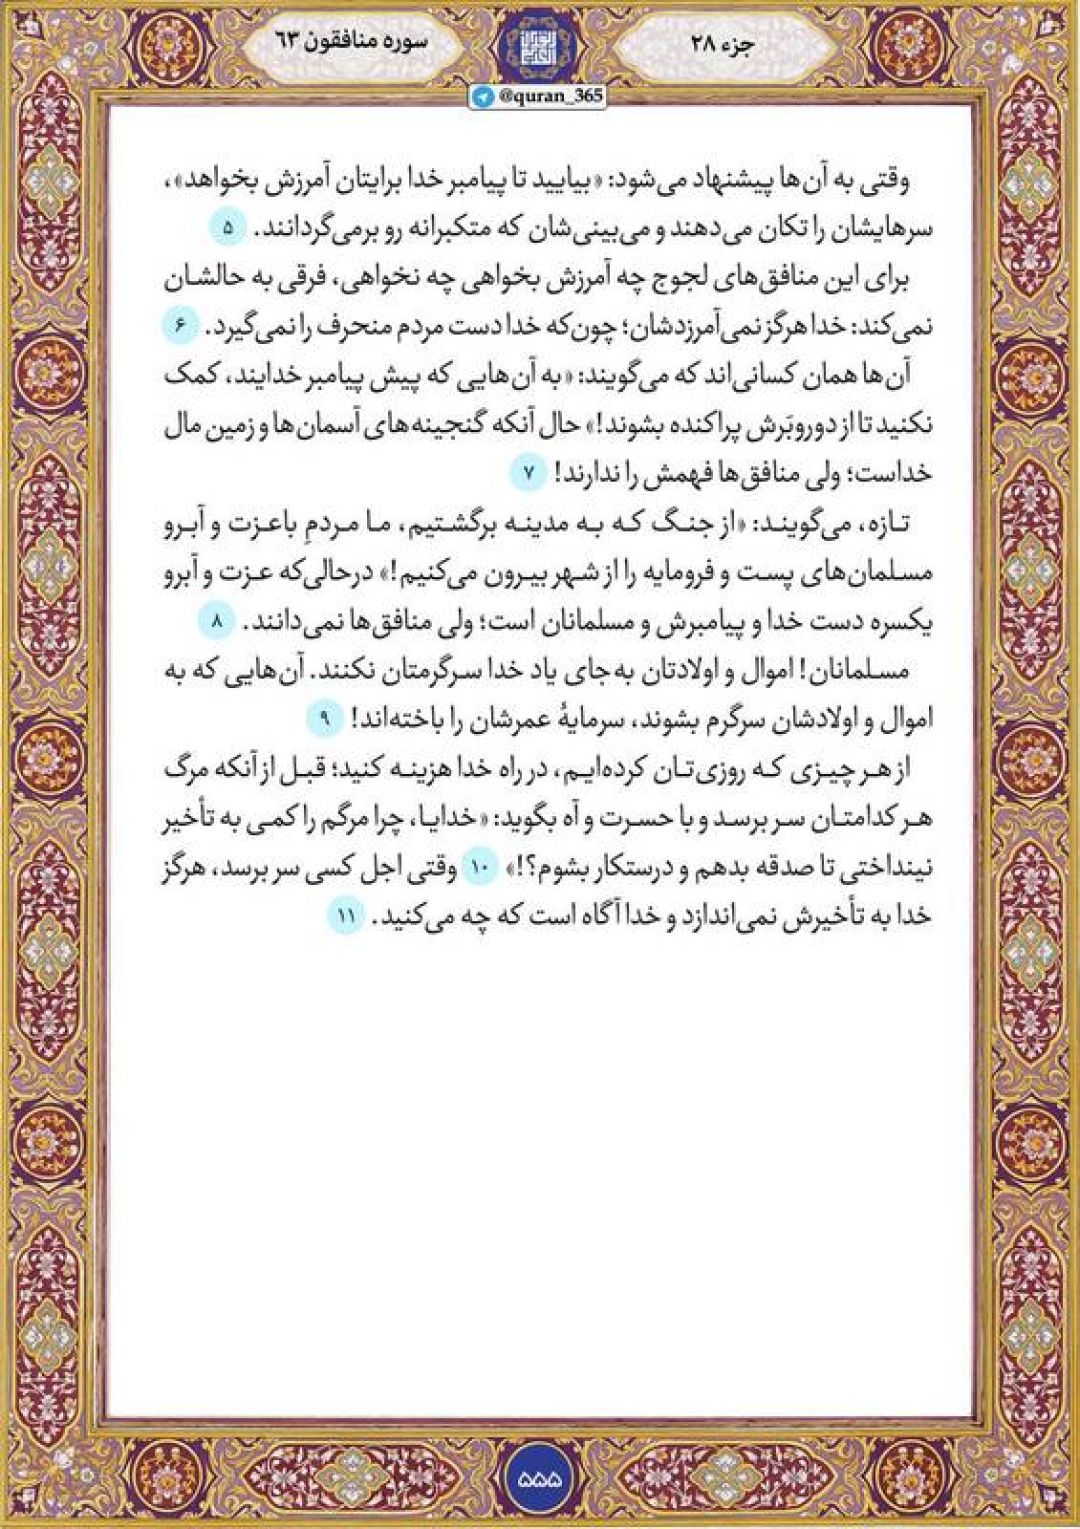 جزء ۲۸
سوره منافقون ۶۳
@quran_365
وقتی به آن‌ها پیشنهاد می‌شود: «بیایید تا پیامبر خدا برایتان آمرزش بخواهد»،
سرهایشان را تکان می‌دهند و می‌بینی‌شان که متکبرانه رو برمی‌گردانند. ۵
برای این منافق‌های لجوج چه آمرزش بخواهی چه نخواهی، فرقی به حالشان
نمی‌کند: خدا هرگز نمی‌آمرزدشان؛ چون‌که خدا دست مردم منحرف را نمی‌گیرد. ۶
آن‌ها همان کسانی‌اند که می‌گویند: «به آن‌هایی که پیش پیامبر خدایند، کمک
نکنید تا از دوروبَرش پراکنده بشوند!» حال آنکه گنجینه‌های آسمان‌ها و زمین مال
خداست؛ ولی منافق‌ها فهمش را ندارند! ۷
تازه، می‌گویند: «از جنگ که به مدینه برگشتیم، ما مردمِ باعزت و آبرو
مسلمان‌های پست و فرومایه را از شهر بیرون می‌کنیم!» درحالی‌که عزت و آبرو
یکسره دست خدا و پیامبرش و مسلمانان است؛ ولی منافق‌ها نمی‌دانند. ۸
مسلمانان! اموال و اولادتان به‌جای یاد خدا سرگرمتان نکنند. آن‌هایی که به
اموال و اولادشان سرگرم بشوند، سرمایهٔ عمرشان را باخته‌اند! ۹
از هر چیزی که روزی‌تان کرده‌ایم، در راه خدا هزینه کنید؛ قبل از آنکه مرگ
هر کدامتان سر برسد و با حسرت و آه بگوید: «خدایا، چرا مرگم را کمی به تأخیر
نینداختی تا صدقه بدهم و درستکار بشوم؟!» ۱۰ وقتی اجل کسی سر برسد، هرگز
خدا به تأخیرش نمی‌اندازد و خدا آگاه است که چه می‌کنید. ۱۱
۵۵۵